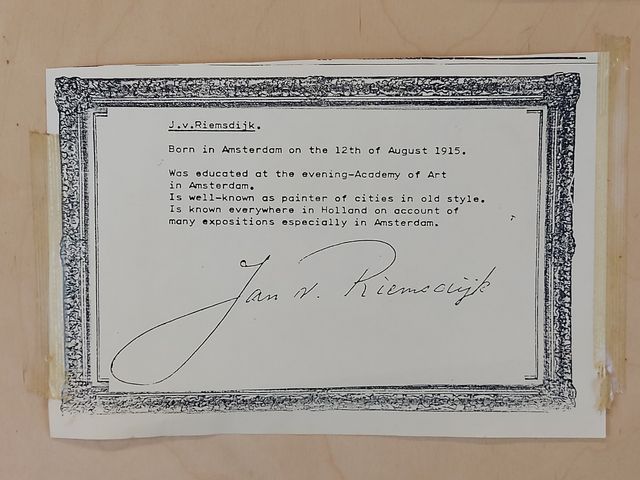 J.v.Riemsdijk.
Born in Amsterdam on the 12th of August 1915.
Was educated at the evening-Academy of Art
in Amsterdam.
Is well-known as painter of cities in old style.
Is known everywhere in Holland on account of
many expositions especially in Amsterdam.
Jan v. Riemsdijk